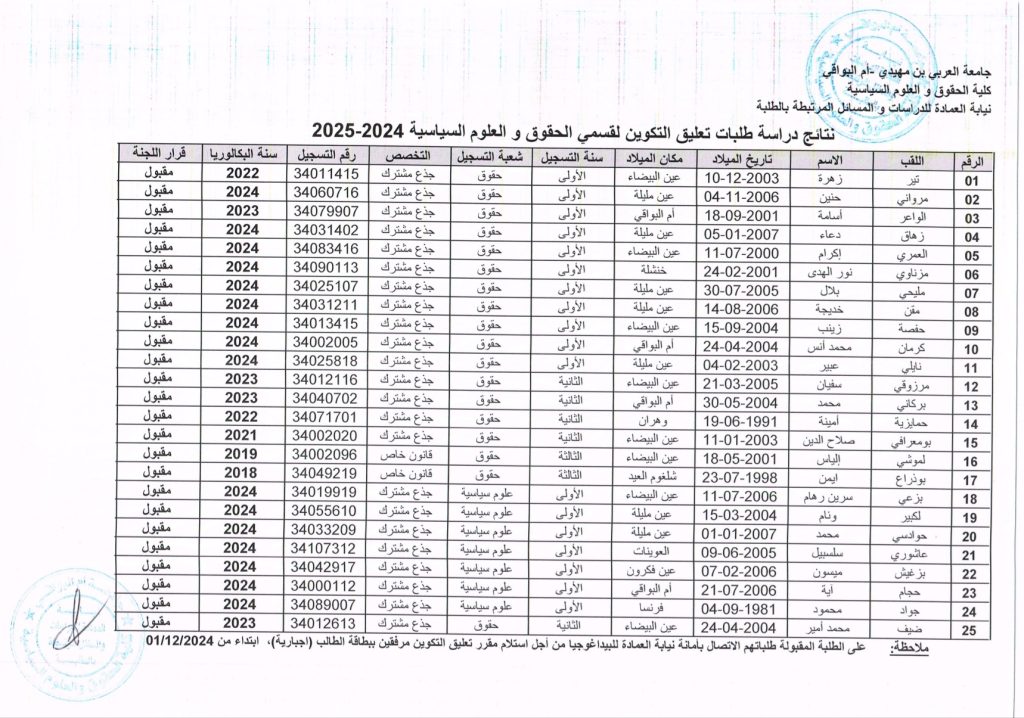 جامعة العربي بن مهيدي -أم البواقي
كلية الحقوق و العلوم السياسية
نيابة العمادة للدراسات و المسائل المرتبطة بالطلبة
نتائج دراسة طلبات تعليق التكوين لقسمي الحقوق و العلوم السياسية 2024-2025
الرقم اللقب الاسم تاريخ الميلاد مكان الميلاد سنة التسجيل شعبة التسجيل التخصص رقم التسجيل سنة البكالوريا قرار اللجنة
01 تير زهرة 10-12-2003 عين البيضاء الأولى حقوق جذع مشترك 34011415 2022 مقبول
02 مرواني حنين 04-11-2006 عين مليلة الأولى حقوق جذع مشترك 34060716 2024 مقبول
03 الواعر أسامة 18-09-2001 أم البواقي الأولى حقوق جذع مشترك 34079907 2023 مقبول
04 زهاق دعاء 05-01-2007 عين مليلة الأولى حقوق جذع مشترك 34031402 2024 مقبول
05 العمري إكرام 11-07-2000 عين البيضاء الأولى حقوق جذع مشترك 34083416 2024 مقبول
06 مزناوي نور الهدى 24-02-2001 خنشلة الأولى حقوق جذع مشترك 34090113 2024 مقبول
07 مليحي بلال 30-07-2005 عين مليلة الأولى حقوق جذع مشترك 34025107 2024 مقبول
08 مقن خديجة 14-08-2006 عين مليلة الأولى حقوق جذع مشترك 34031211 2024 مقبول
09 حفصة زينب 15-09-2004 عين البيضاء الأولى حقوق جذع مشترك 34013415 2024 مقبول
10 كرمان محمد أنس 24-04-2004 أم البواقي الأولى حقوق جذع مشترك 34002005 2024 مقبول
11 نايلي عبير 04-02-2003 عين مليلة الأولى حقوق جذع مشترك 34025818 2024 مقبول
12 مرزوقي سفيان 21-03-2005 عين البيضاء الثانية حقوق جذع مشترك 34012116 2023 مقبول
13 بركاني محمد 30-05-2004 أم البواقي الثانية حقوق جذع مشترك 34040702 2023 مقبول
14 حمايزية أمينة 19-06-1991 وهران الثانية حقوق جذع مشترك 34071701 2022 مقبول
15 بومعرافي صلاح الدين 11-01-2003 عين البيضاء الثانية حقوق جذع مشترك 34002020 2021 مقبول
16 لموشي إلياس 18-05-2001 عين البيضاء الثالثة حقوق قانون خاص 34002096 2019 مقبول
17 بوذراع ايمن 23-07-1998 شلغوم العيد الثالثة حقوق قانون خاص 34049219 2018 مقبول
18 بزعي سرين رهام 11-07-2006 عين البيضاء الأولى علوم سياسية جذع مشترك 34019919 2024 مقبول
19 لكبير ونام 15-03-2004 عين مليلة الأولى علوم سياسية جذع مشترك 34055610 2024 مقبول
20 حوادسي محمد 01-01-2007 عين مليلة الأولى علوم سياسية جذع مشترك 34033209 2024 مقبول
21 عاشوري سلسبيل 09-06-2005 العوينات الأولى علوم سياسية جذع مشترك 34107312 2024 مقبول
22 بزغيش ميسون 07-02-2006 عين فكرون الأولى علوم سياسية جذع مشترك 34042917 2024 مقبول
23 حجام اية 21-07-2006 أم البواقي الأولى علوم سياسية جذع مشترك 34000112 2024 مقبول
24 جواد محمود 04-09-1981 فرنسا الأولى علوم سياسية جذع مشترك 34089007 2024 مقبول
25 ضيف محمد أمير 24-04-2004 عين البيضاء الثانية حقوق جذع مشترك 34012613 2023 مقبول
ملاحظة: على الطلبة المقبولة طلباتهم الاتصال بأمانة نيابة العمادة للبيداغوجيا من أجل استلام مقرر تعليق التكوين مرفقين ببطاقة الطالب (اجبارية)، ابتداء من 01/12/2024